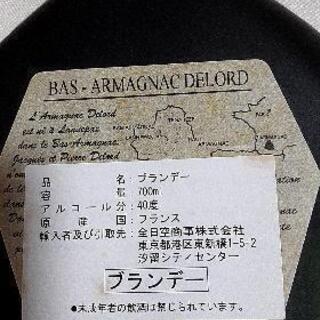 BAS - ARMAGNAC DELORD
L'Armagnac Delord
est né à Lannepax
dans le Bas Armagnac.
Jacques et Pierre Delord
品 名：ブランデー
容 量：700ml
アルコール分：40度
原 産 国：フランス
輸入者及び引取先：全日空商事株式会社
東京都港区東新橋1-5-2
汐留シティセンター
ブランデー
●未成年者の飲酒は禁じられています。